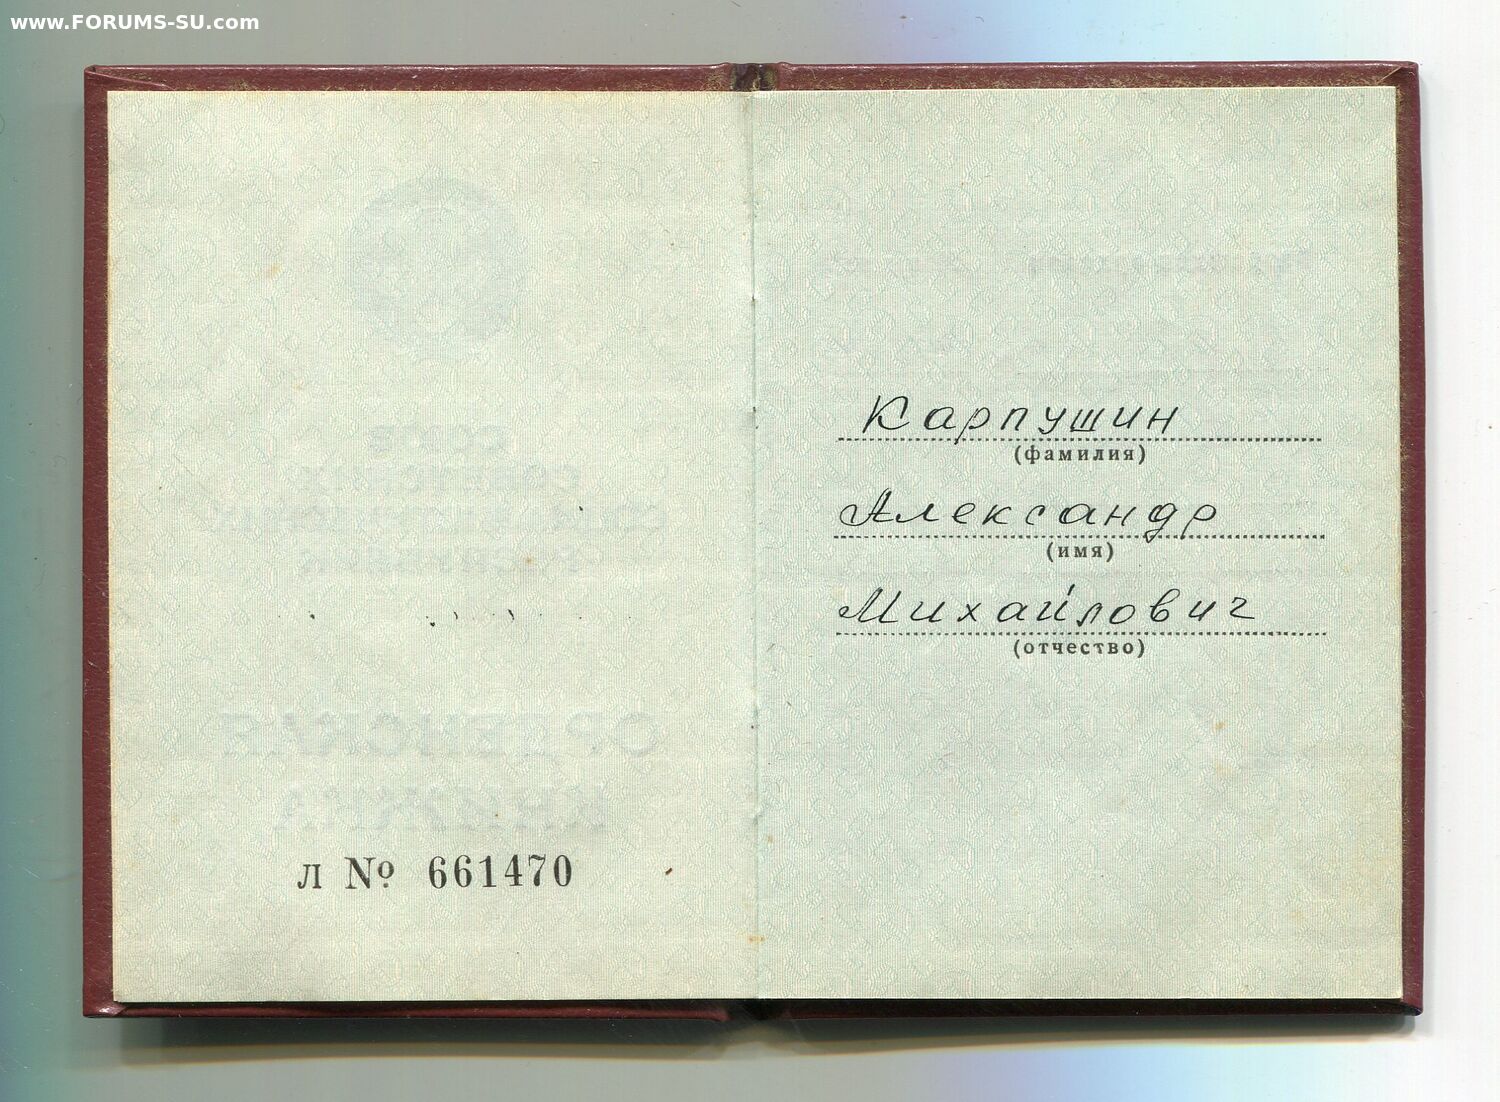 www.FORUMS-SU.com
л № 661470
Карпушин
(фамилия)
Александр
(имя)
Михайлович
(отчество)